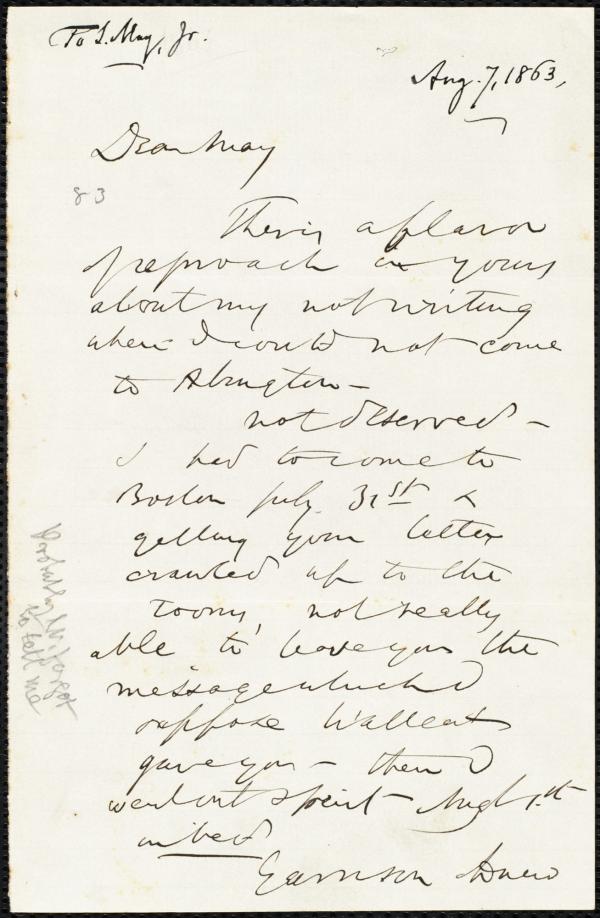 To S. May, Jr.
Aug. 7, 1863,
Dear May
83
There is a flavor
of reproach in yours
about my not writing
when I could not come
to Abington -
not deserved -
I had to come to
Boston July 31st &
getting your letter
crawled up to the
rooms, not really
able to, leave you the
message which I
suppose Wallcut
gave you - then I
went out & spent Aug 1st
in bed
Garrison knew
Probably W. forgot
to tell me